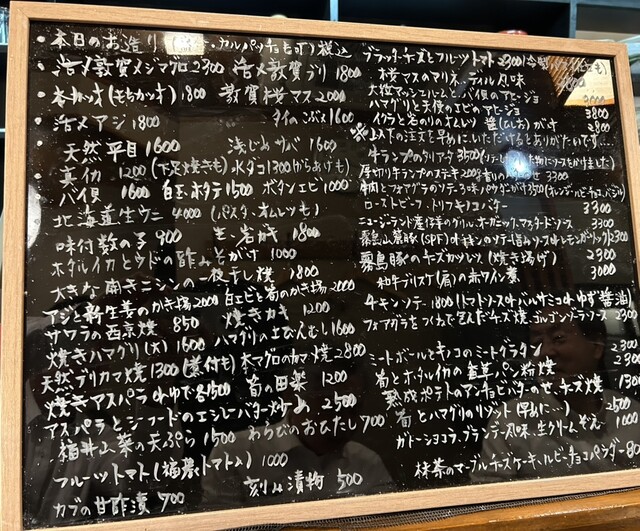 ・本日のお造り カルパッチョもできます 税込
・活〆敦賀メジマグロ2300 活〆敦賀ブリ1800
・本カツオ(もちカツオ)1800 敦賀桜マス2000
・活〆アジ1800 タイのこぶ〆1600
・天然平目1600 浅じめサバ1600
・真イカ1200(下足焼きも) 水ダコ1300(からあげも)
バイ貝1600 白玉ホタテ1500 ボタンエビ1000
北海道生ウニ4000(パスタ、オムレツも)
味付数の子900 生岩がき1800
ホタルイカとウドの酢みそがけ1000
大きな開きニシンの一夜干し焼1800
アジと新生姜のかき揚2000 白エビと筍のかき揚2000
サワラの西京焼850 焼きカキ1200
焼きハマグリ(大)1600 ハマグリの土びんむし1600
天然ブリカマ焼1300(煮付も) 本マグロのカマ焼2800
焼きアスパラ ゆで各1500 筍の田楽1200
アスパラとシーフードのエシレバター炒め2500
福井山菜の天ぷら1500 わらびのおひたし700
フルーツトマト(福農トマト)1000
カブの甘酢漬700 刻み漬物500
ブラッターチーズとフルーツトマト2300
桜マスのマリネ、ディル風味
大粒マッシュルームとバイ貝のアヒージョ3000
ハマグリと天使のエビのアヒージョ3800
イクラと岩のりのオムレツ 醤(ひしお)がけ2800
※以下の注文を早めにいただけるとありがたいです…
牛ランプのタリアータ3500
厚切り牛ランプのステーキ 3300
牛肉とフォアグラのソテー3味
ローストビーフ、トリュフ塩バター3300
ニュージーランド産仔羊のグリル、オーガニック、マスタードソース3300
霧島山麓豚(SPF) 2300
霧島豚のチーズカツレツ(焼き揚げ)2300
和牛ブリスケ(肩)の赤ワイン煮3000
牛タンソテー1800(トマトソースorバルサミコorゆず醤油)
フォアグラをつくねで包んだチーズ焼、ゴルゴンゾーラソース2300
ミートボールとキノコのミートグラタン2300
筍とホタルイカの香草パン粉焼2300
熟成ポテトのアンチョビバターのせ、チーズ焼1300
筍とハマグリのリゾット(早めに…)2500
ガトーショコラ、ブランデー風味、生クリームぞえ1000
抹茶のマーブルチーズケーキ、ルビーチョコパウダー800